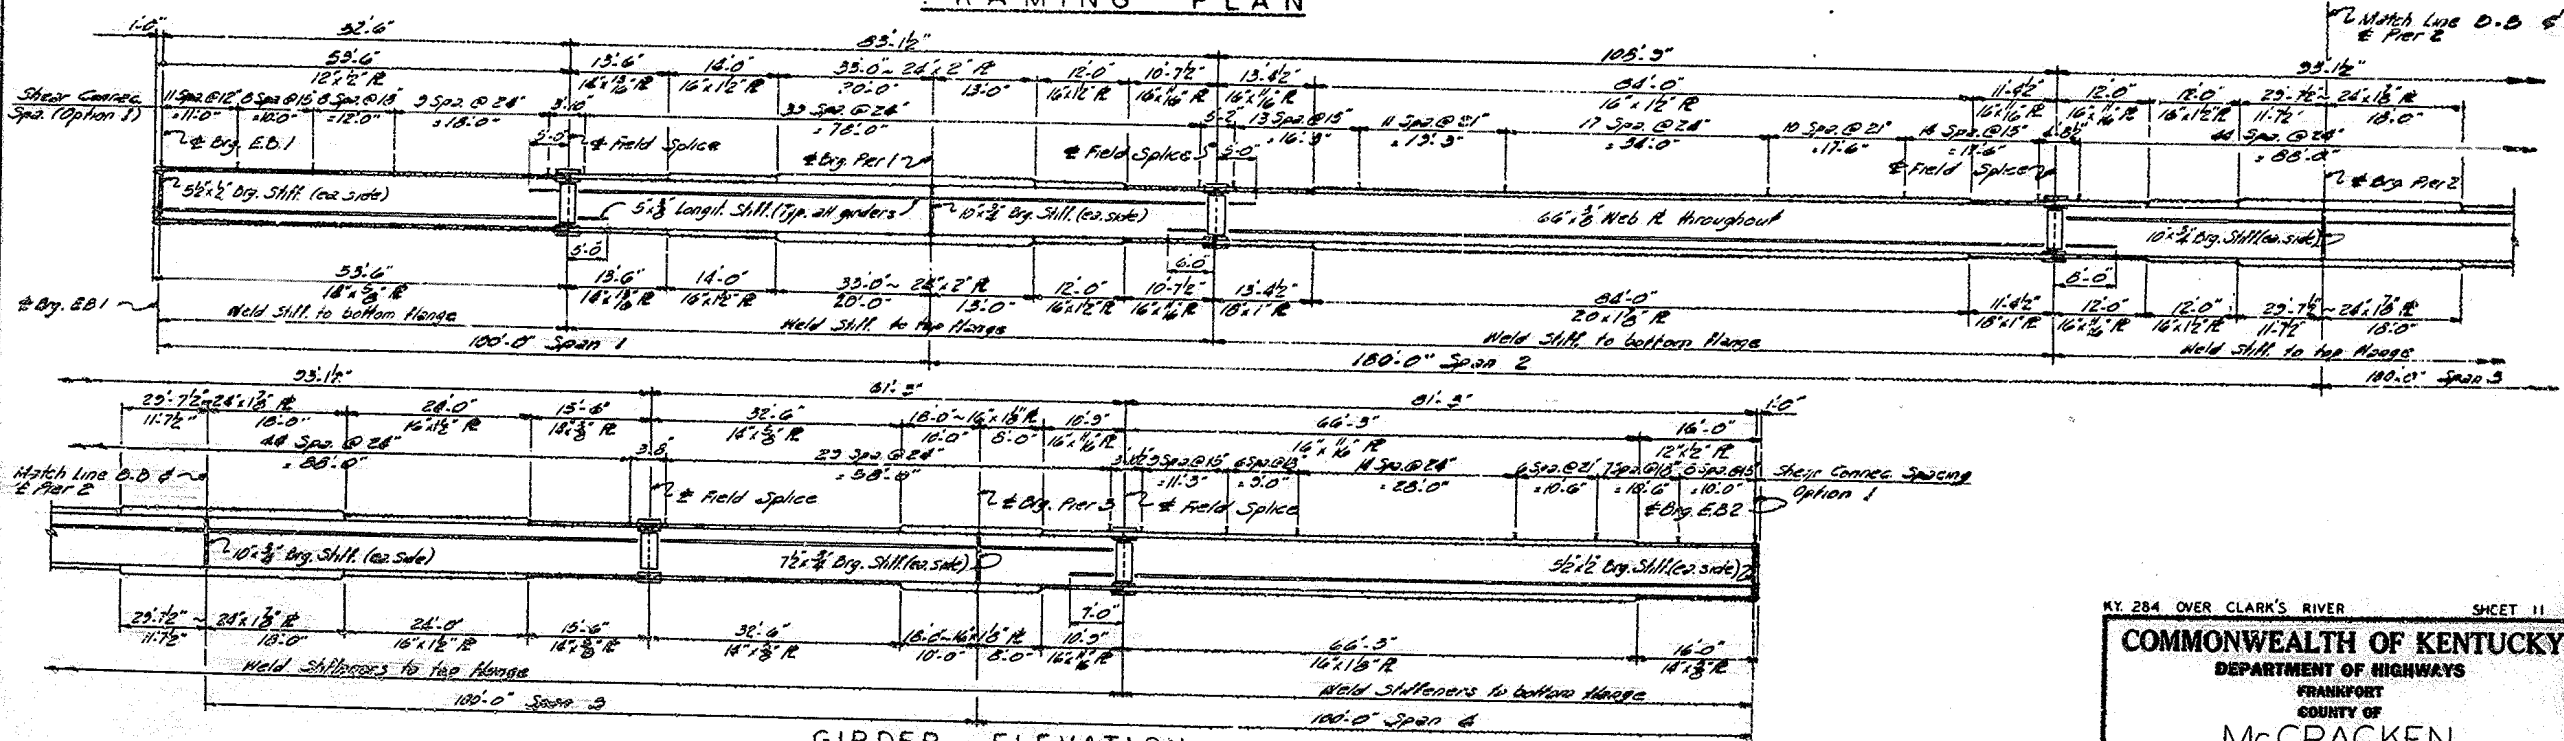 FRAMING PLAN
Match Line B-B ¢
℄ Pier 2
1'-0"
52'-6"
83'-1½"
108'-9"
93'-1½"
53'-6"
12"x½" ℞
13'-6"
14'-0"
16"x1½" ℞
33'-0" ~ 24"x2" ℞
20'-0"
13'-0"
12'-0"
16"x1½" ℞
10'-7½"
16"x11/16" ℞
13'-4½"
16"x11/16" ℞
84'-0"
16"x1½" ℞
11'-4½"
16"x11/16" ℞
12'-0"
16"x11/16" ℞
12'-0"
16"x1½" ℞
29'-7½" ~ 24"x1⅞" ℞
11'-7½"
18'-0"
Shear Connec.
Spa. (Option 1)
11 Spa. @ 12"
=11'-0"
8 Spa @ 15"
=10'-0"
8 Spa. @ 18"
=12'-0"
9 Spa. @ 24"
=18'-0"
3'-10"
39 Spa. @ 24"
=78'-0"
5'-2"
13 Spa. @ 15"
=16'-3"
11 Spa. @ 21"
=19'-3"
17 Spa. @ 24"
=34'-0"
10 Spa. @ 21"
=17'-6"
14 Spa. @ 15"
=17'-6"
4'-8½"
44 Spa. @ 24"
=88'-0"
℄ Brg. E.B.1
5'-0"
℄ Field Splice
℄ Brg. Pier 1
℄ Field Splice
5'-0"
℄ Field Splice
℄ Brg. Pier 2
5½"x½" Brg. Stiff. (ea. side)
5"x⅜" Longit. Stiff. (Typ. all girders)
10"x¾" Brg. Stiff. (ea. side)
66"x⅜" Web ℞ throughout
10"x¾" Brg. Stiff. (ea. side)
5'-0"
6'-0"
8'-0"
℄ Brg. EB1
53'-6"
14"x⅝" ℞
13'-6"
14'-0"
16"x1½" ℞
33'-0" ~ 24"x2" ℞
20'-0"
13'-0"
12'-0"
16"x1½" ℞
10'-7½"
16"x11/16" ℞
13'-4½"
18"x1" ℞
84'-0"
20"x1⅛" ℞
11'-4½"
18"x1" ℞
12'-0"
16"x11/16" ℞
12'-0"
16"x1½" ℞
29'-7½" ~ 24"x1⅞" ℞
11'-7½"
18'-0"
Weld Stiff. to bottom flange
Weld Stiff. to top flange
Weld Stiff. to bottom flange
Weld Stiff. to top flange
100'-0" Span 1
180'-0" Span 2
180'-0" Span 3
93'-1½"
61'-3"
81'-3"
1'-0"
29'-7½" ~ 24"x1⅞" ℞
11'-7½"
18'-0"
24'-0"
16"x1½" ℞
15'-6"
14"x⅝" ℞
32'-6"
14"x⅝" ℞
18'-0" ~ 16"x1⅛" ℞
10'-0"
8'-0"
10'-9"
16"x11/16" ℞
66'-3"
16"x11/16" ℞
16'-0"
12"x½" ℞
44 Spa. @ 24"
=88'-0"
3'-8"
29 Spa. @ 24"
=58'-0"
9 Spa @ 15"
=11'-3"
6 Spa @ 18"
=9'-0"
14 Spa. @ 24"
=28'-0"
6 Spa. @ 21"
=10'-6"
7 Spa @ 18"
=10'-6"
8 Spa. @ 15"
=10'-0"
Shear Connec. Spacing
Option 1
Match Line B-B ¢
℄ Pier 2
℄ Field Splice
℄ Brg. Pier 3
℄ Field Splice
℄ Brg. E.B.2
10"x¾" Brg. Stiff. (ea. side)
7½"x¾" Brg. Stiff. (ea. side)
5½"x½" Brg. Stiff. (ea. side)
7'-0"
29'-7½" ~ 24"x1⅞" ℞
11'-7½"
18'-0"
24'-0"
16"x1½" ℞
15'-6"
14"x⅝" ℞
32'-6"
14"x⅝" ℞
18'-0" ~ 16"x1⅛" ℞
10'-0"
8'-0"
10'-9"
16"x11/16" ℞
66'-3"
16"x1⅛" ℞
16'-0"
14"x⅝" ℞
Weld Stiffeners to top flange
Weld Stiffeners to bottom flange
180'-0" Span 3
100'-0" Span 4
GIRDER ELEVATION
KY. 284 OVER CLARK'S RIVER SHEET 11
COMMONWEALTH OF KENTUCKY
DEPARTMENT OF HIGHWAYS
FRANKFORT
COUNTY OF
McCRACKEN